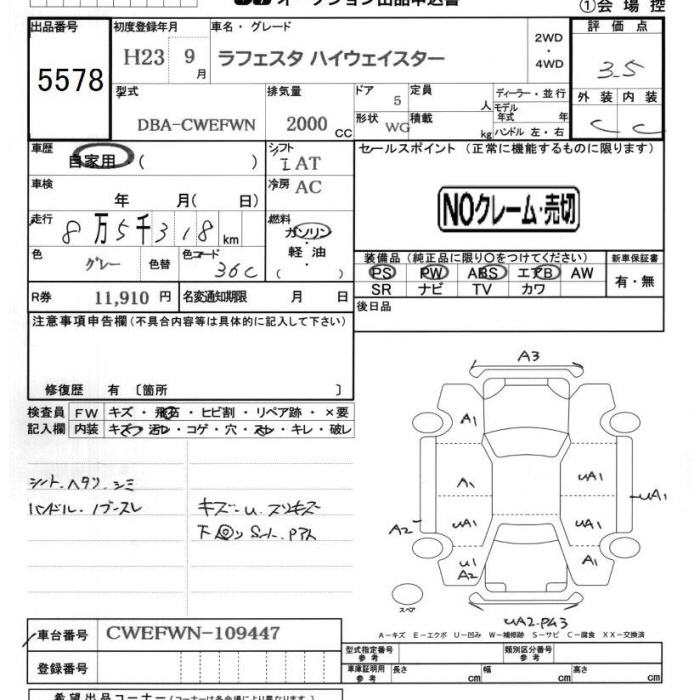 オークション出品申込書
①会場控
出品番号 初度登録年月 車名・グレード 評価点
5578
H23 9月 ラフェスタ ハイウェイスター 2WD・4WD 3.5
型式 排気量 ドア 5 定員 人 ディーラー・並行 外装 内装
DBA-CWEFWN 2000 CC 形状 WG 積載 kg モデル年式 年 ハンドル 左・右 C C
車歴 自家用 ( ) シフト IAT セールスポイント (正常に機能するものに限ります)
車検 年 月( 日) 冷房 AC
NOクレーム・売切
走行 8万5千318km 燃料 ガソリン・軽油 ( )
色 グレー 色替 色コード 36C
装備品 (純正品に限り○をつけてください) 新車保証書
PS PW ABS エアB AW 有・無
SR ナビ TV カワ
R券 11,910 円 名変通知期限 月 日 後日品
注意事項申告欄 (不具合内容等は具体的に記入して下さい)
修復歴 有 〔箇所 〕
検査員 FW キズ・飛石・ヒビ割・リペア跡・×要
記入欄 内装 キズ・汚レ・コゲ・穴・スレ・キレ・破レ
シート.ヘタリ.シミ
ハンドル.ノブースレ
キズー U.スリキズ
A3
A1
A1 UA1
UA1
A2 UA1 UA1
U1 A2 A1
スペア
UA2.PA3
A−キズ E−エクボ U−凹み W−補修跡 S−サビ C−腐食 XX−交換済
車台番号 CWEFWN-109447
型式指定番号 参考 類別区分番号 参考
登録番号
車庫証明用 参考 長さ cm 幅 cm 高さ cm
希望出品コーナー (コーナーは各会場により異なります。)